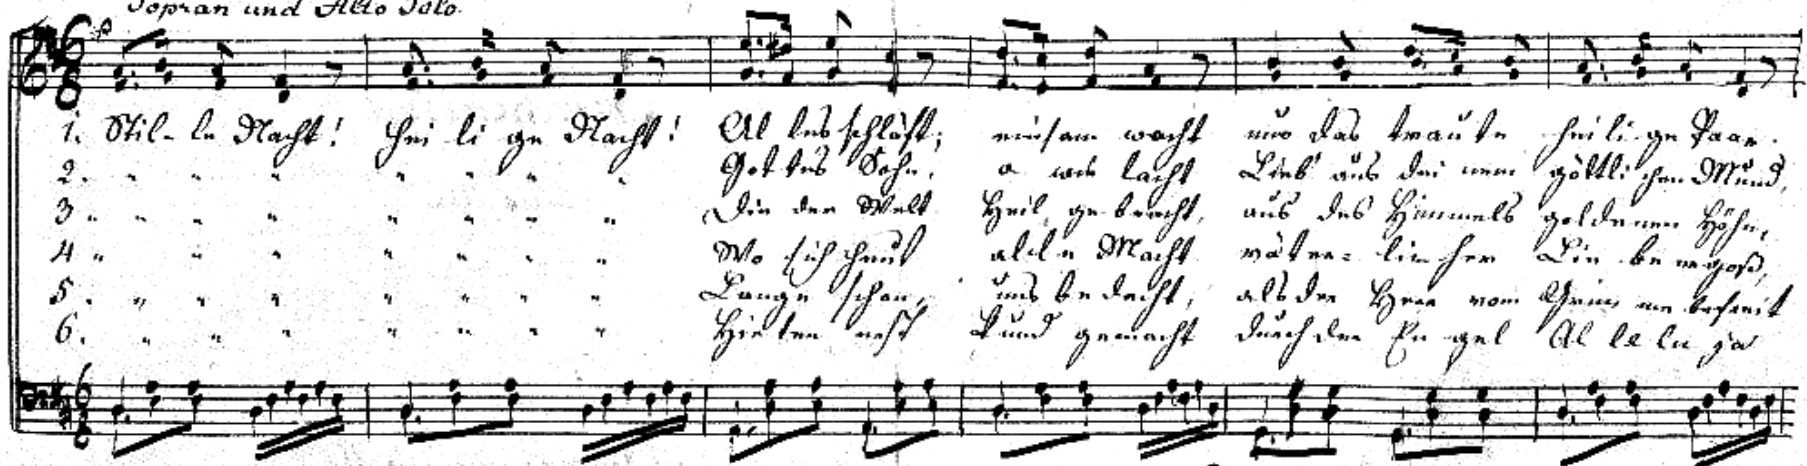 Sopran und Alto Solo.
1. Stil- le Nacht! Hei li ge Nacht! Al les schläft; einsam wacht nur das traute heili-ge Paar.
2. " " " " " " " Gottes Sohn, o wie lacht Lieb' aus dei nem göttlichen Mund,
3 " " " " " " " Die der Welt Heil gebracht, aus des Himmels goldenen Höhn,
4 " " " " " " " Wo sich heut alle Macht väter- licher Lie be ergoß,
5. " " " " " " " Lange schon, uns bedacht, als der Herr vom Grimme befreit
6. " " " " " " " Hirten erst kund gemacht durch der En gel Al le lu ja